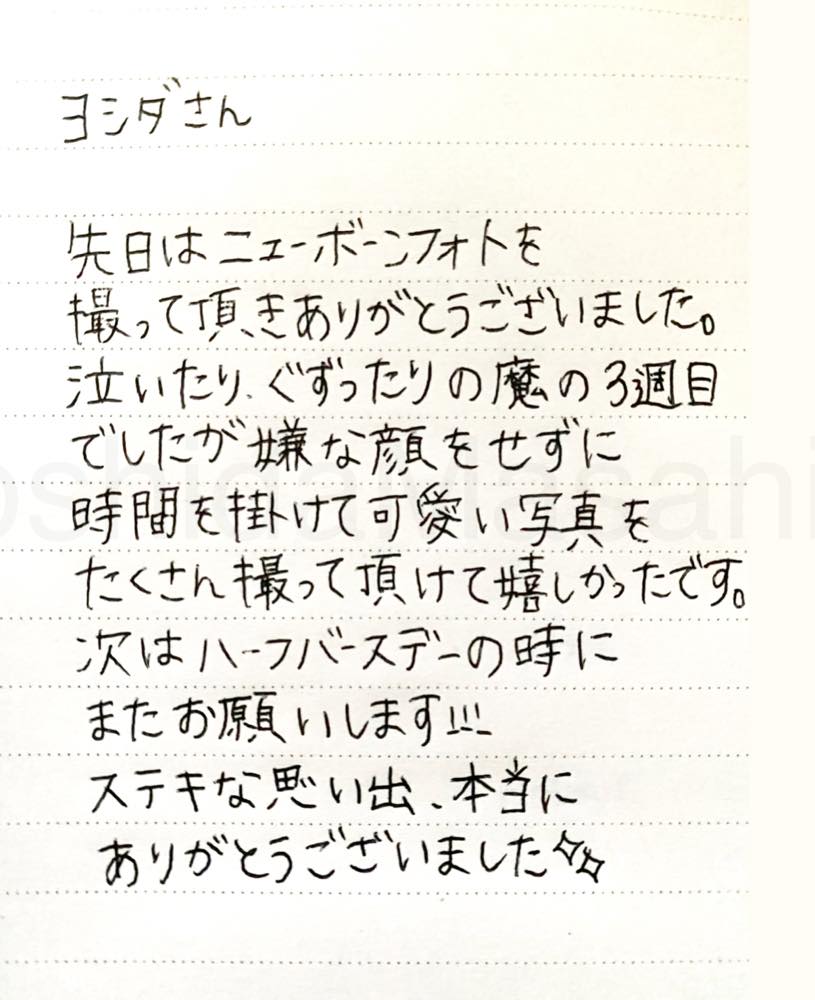 ヨシダさん
先日はニューボーンフォトを
撮って頂きありがとうございました。
泣いたり、ぐずったりの魔の3週目
でしたが嫌な顔をせずに
時間を掛けて可愛い写真を
たくさん撮って頂けて嬉しかったです。
次はハーフバースデーの時に
またお願いします!!!
ステキな思い出、本当に
ありがとうございました✨